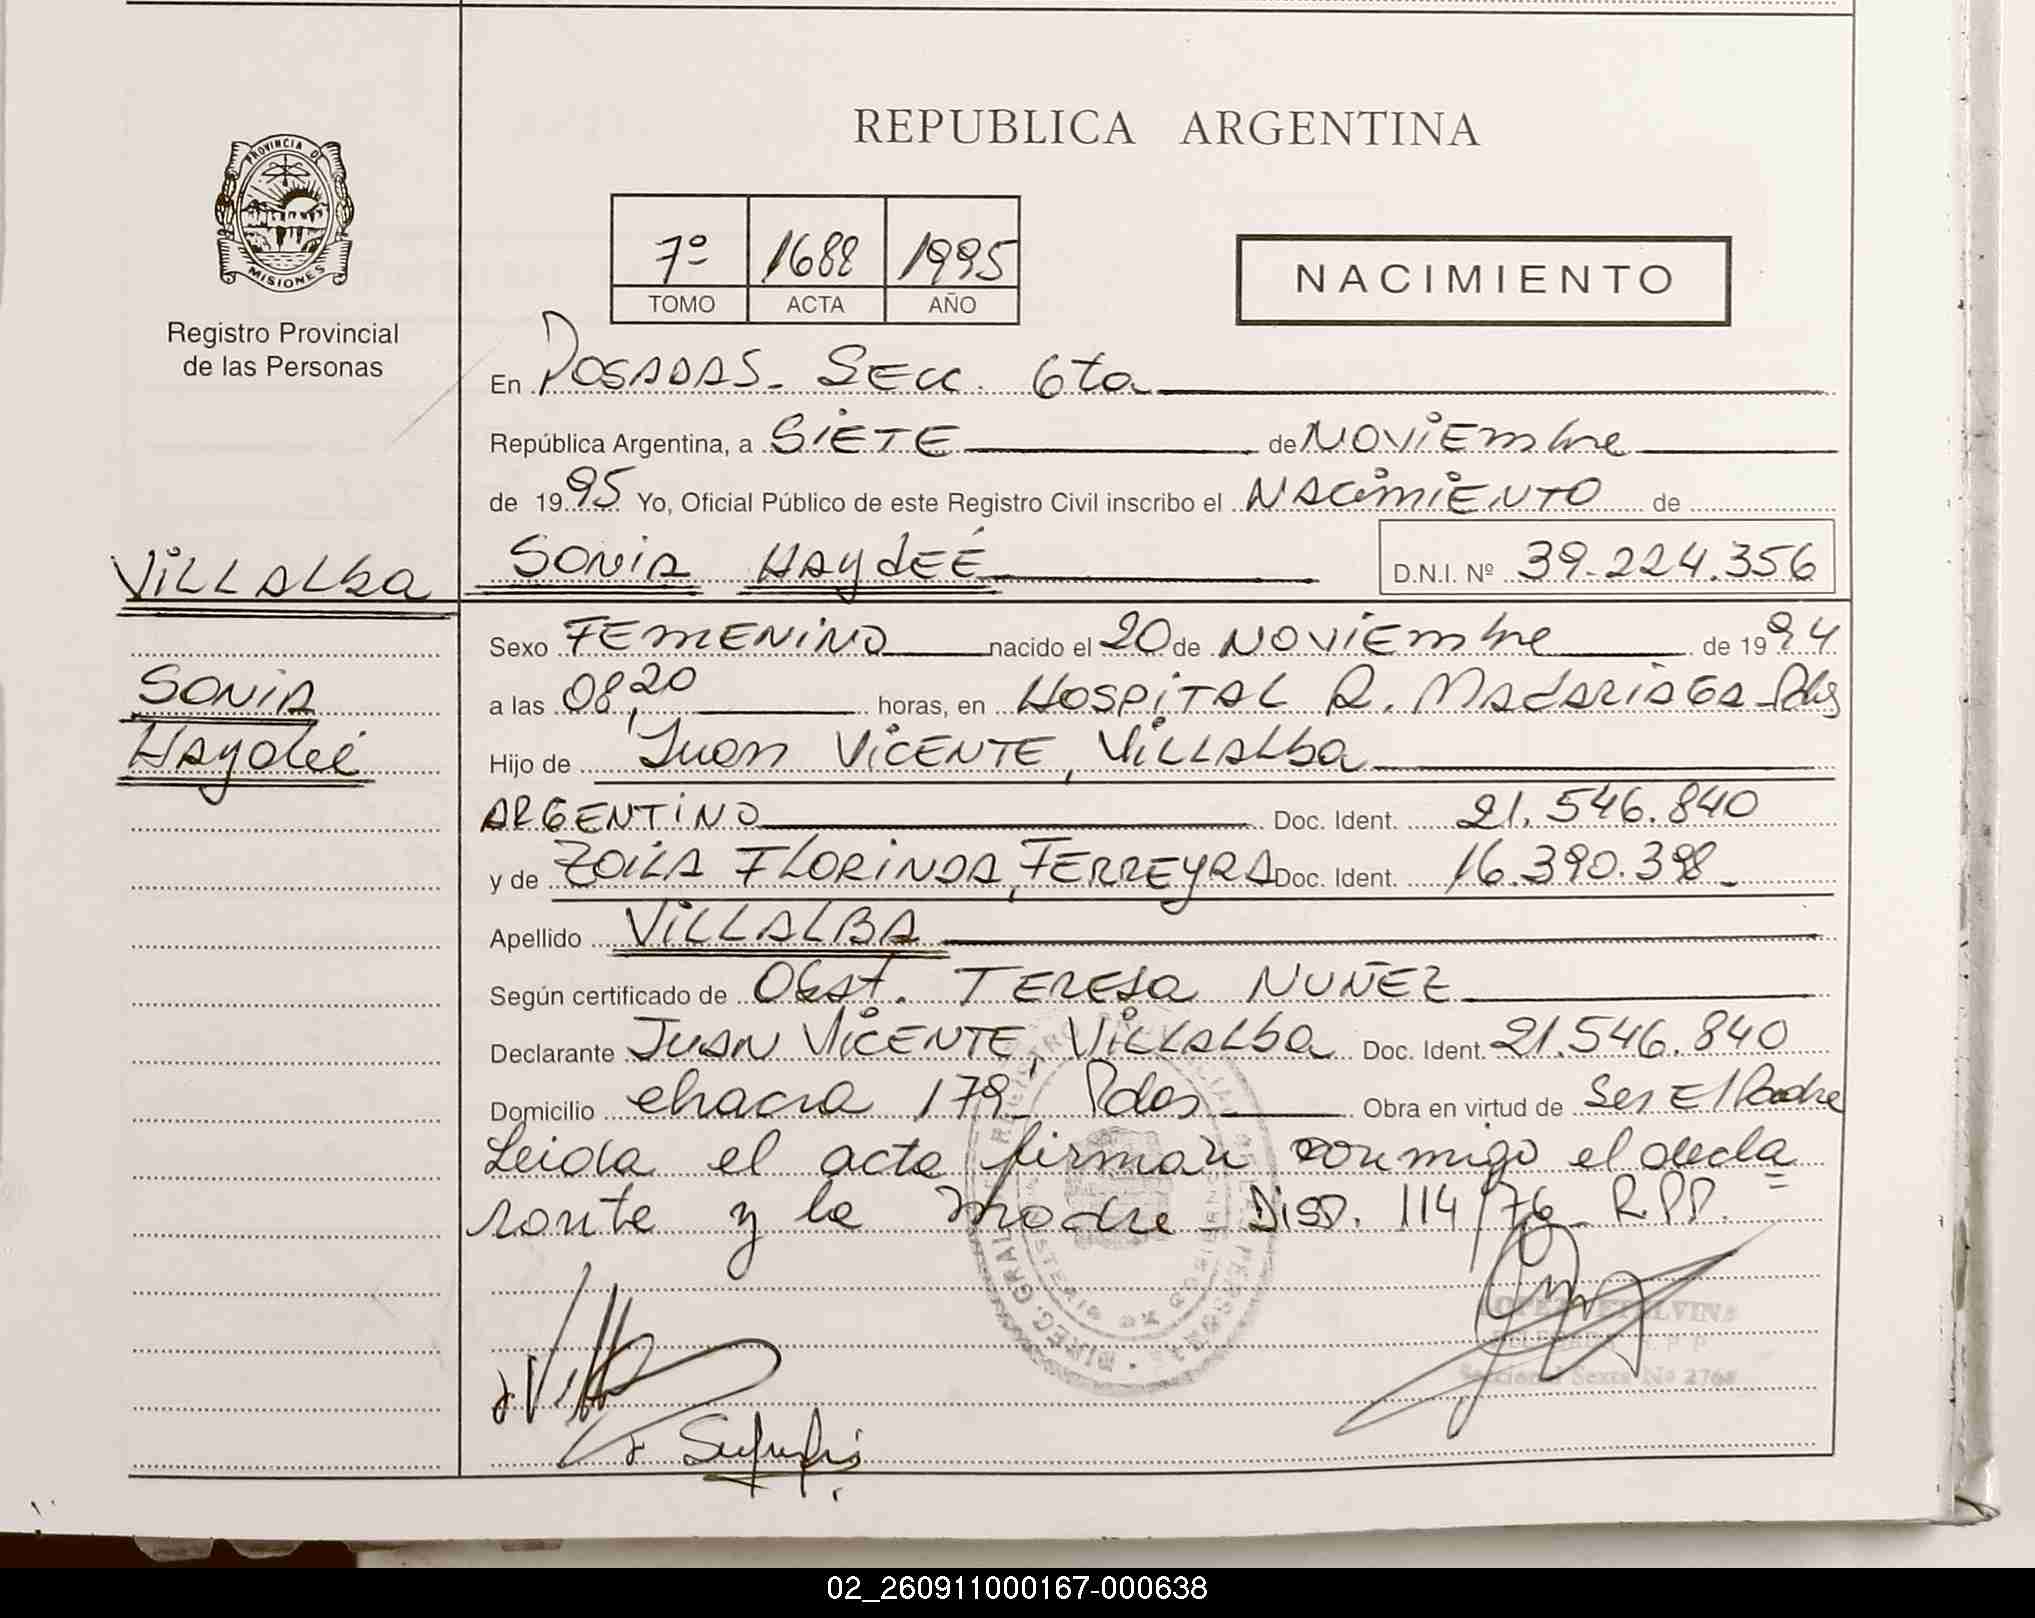 REPUBLICA ARGENTINA
PROVINCIA DE
MISIONES
Registro Provincial
de las Personas
7º 1688 1995
TOMO ACTA AÑO
NACIMIENTO
En POSADAS. SECC. 6ta
República Argentina, a SIETE de NOVIEmbre
de 1995 Yo, Oficial Público de este Registro Civil inscribo el NACIMIENTO de
VILLALba SONIA HAYdEÉ D.N.I. Nº 39.224.356
Sexo FEMENINO nacido el 20 de NOVIEmbre de 1994
SONIA a las 08,20 horas, en HOSPITAL R. MADARIAGA - Pdas
HAydeé Hijo de Juan VICENTE, VILLALba
ARGENTINO Doc. Ident. 21.546.840
y de ZOILA FLORINDA, FERREYRA Doc. Ident. 16.390.398
Apellido VILLALBA
Según certificado de Obst. TERESA NUÑEZ
Declarante JUAN VICENTE, VILLALba Doc. Ident. 21.546.840
Domicilio chacra 179 - Pdas Obra en virtud de Ser El Padre
Leida el acta firman conmigo el decla=
rante y la madre - DISP. 114/76 - R.P.P.
Seccional Sexta Nº
02_260911000167-000638